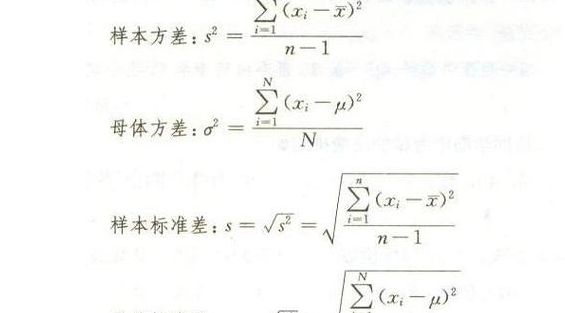 样本方差:s² = ∑_{i=1}(xᵢ − x̄)² / (n − 1)
母体方差:σ² = ∑_{i=1}^{N}(xᵢ − μ)² / N
样本标准差:s = √s² = √(∑_{i=1}^{n}(xᵢ − x̄)² / (n − 1))
∑^{N}(xᵢ − μ)²